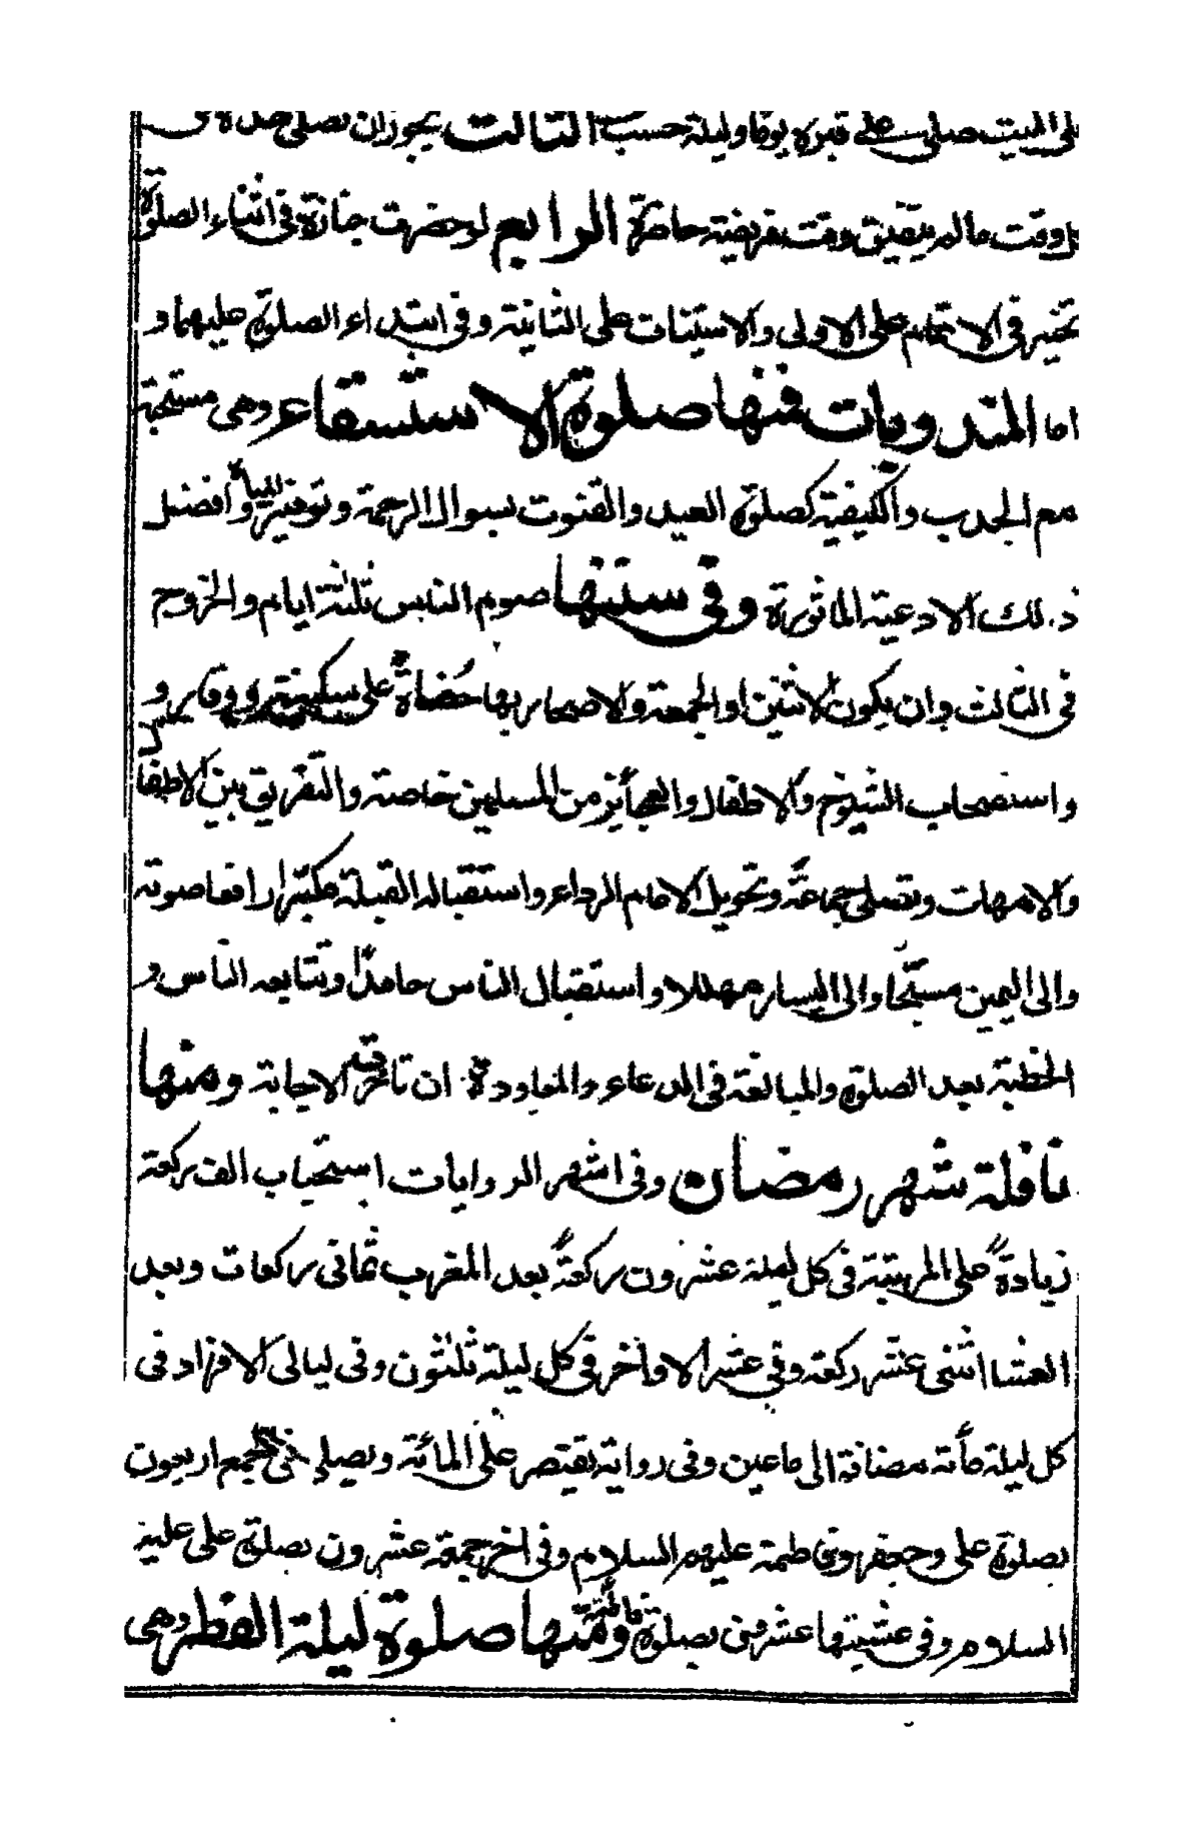 على الميت صلى على قبره يوما وليلة حسب الثالث يجوز ان يصلى هذه فى
كل وقت ما لم يتضيق وقت فريضة حاضرة الرابع لو حضرت جنازة فى اثناء الصلوة
تخير فى الاتمام على الاولى والاستيناف على الثانية وفى ابتداء الصلوة عليهما و
اما المندوبات فمنها صلوة الاستسقاء وهى مستحبة
مع الجدب والكيفية كصلوة العيد والقنوت بسوال الرحمة وتوفير المياه وافضل
ذلك الادعية الماثورة وفى سننها صوم الناس ثلثة ايام والخروج
فى الثالث وان يكون الاثنين او الجمعة والاصحار بها حفاة على سكينة ووقار و
واستصحاب الشيوخ والاطفال والعجائز من المسلمين خاصة والتفريق بين الاطفال
والامهات وتصلى جماعة وتحويل الامام الرداء واستقباله القبلة مكبرا رافعا صوته
والى اليمين مسبّحا والى اليسار مهللا واستقبال الناس حامدا وتتابعه الناس و
الخطبة بعد الصلوة والمبالغة فى الدعاء والمعاودة ان تاخرت الاجابة ومنها
نافلة شهر رمضان وفى اشهر الروايات استحباب الف ركعة
زيادةً على المرتبة فى كل ليلة عشرون ركعةً بعد المغرب ثمانى ركعات وبعد
العشا اثنى عشر ركعة وفى عشر الاواخر فى كل ليلة ثلثون وفى ليالى الافراد فى
كل ليلة مأنة مضافة الى ما عين وفى رواية يقتصر على المائة ويصلى فى الجمع اربعون
بصلوة على وجعفر وفاطمة عليهم السلام وفى اخر جمعة عشرون بصلوة على عليه
السلام وفى عشيتها عشرون بصلوة فاطمة ومنها صلوة ليلة الفطر وهى